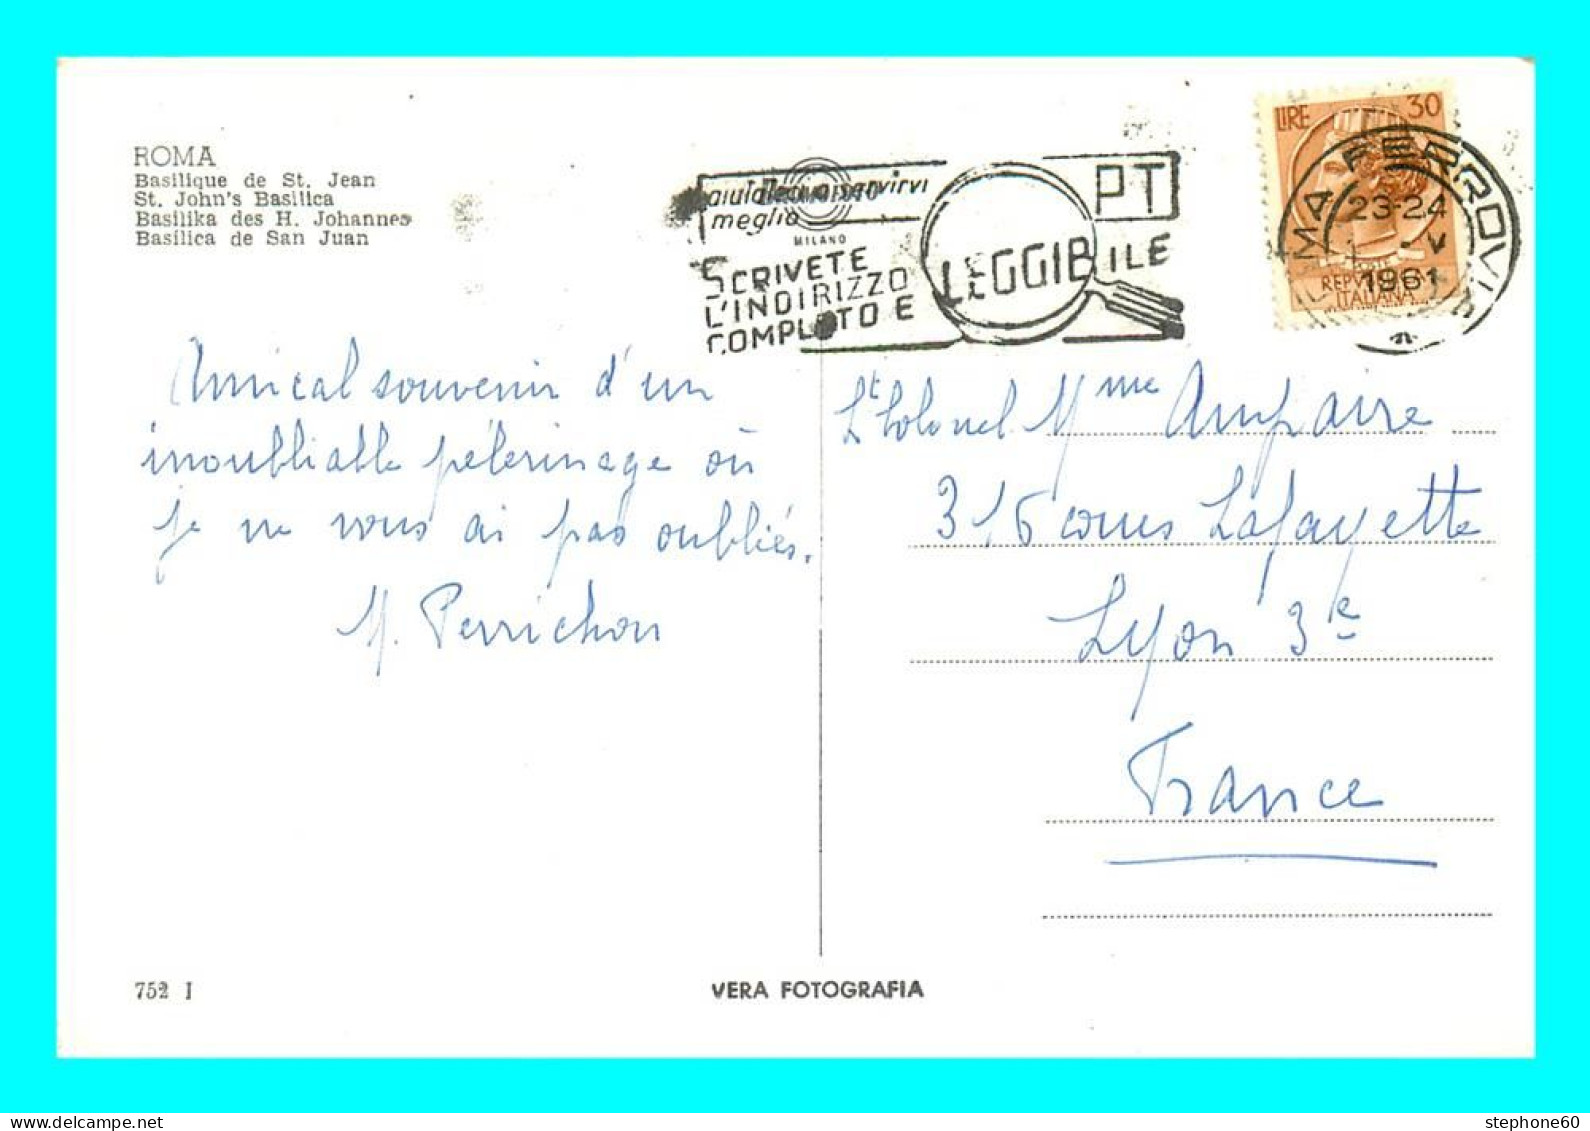 ROMA
Basilique de St. Jean
St. John's Basilica
Basilika des H. Johannes
Basilica de San Juan
aiutateci a servirvi
meglio
PT
MILANO
SCRIVETE
L'INDIRIZZO
COMPLETO E LEGGIBILE
LIRE 30
FERROVIA
23-24
-V
1961
REPVBBLICA
ITALIANA
Amical souvenir d'un
inoubliable pélerinage où
je ne vous ai pas oubliés.
M. Perrichon
Lt Colonel Mme Ampaire
316 cours Lafayette
Lyon 3e
France
752 I
VERA FOTOGRAFIA
stephone60